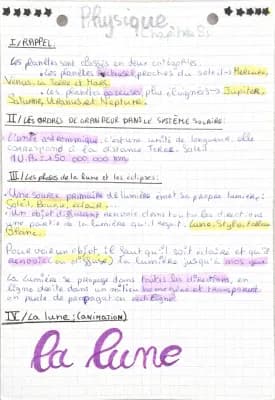 Physique
Chapitre 8:
I/ RAPPEL:
Les planètes sont classés en deux catégories.
• Les planètes rocheuses, proches du soleil → Mercure,
Vénus, la Terre et Mars.
• Les planètes gazeuses plus éloignées → Jupiter,
Saturne, Uranus et Neptune.
II/ LES ORDRES DE GRANDEUR DANS LE SYSTÈME SOLAIRE:
L'unité astronomique, c'est une unité de longueur, elle
correspond à la distance Terre-Soleil
1U.A = 150 000 000 km
III/ Les phases de la lune et les éclipses:
• Une source primaire de lumière émet sa propre lumière:
Soleil, Bougie, éclair...
• Un objet diffusant renvoie dans toutes les directions
une partie de la lumière qu'il reçoit. Lune, Stylo, tableau
Blanc.
Pour voir un objet, il faut qu'il soit éclairé et qu'il
renvoie (ou diffuse) la lumière jusqu'à nos yeux
La lumière se propage dans toutes les directions, en
ligne droite dans un milieu homogène et transparent
on parle de propagation rectiligne.
IV/ La lune: (ANIMATION)
la lune